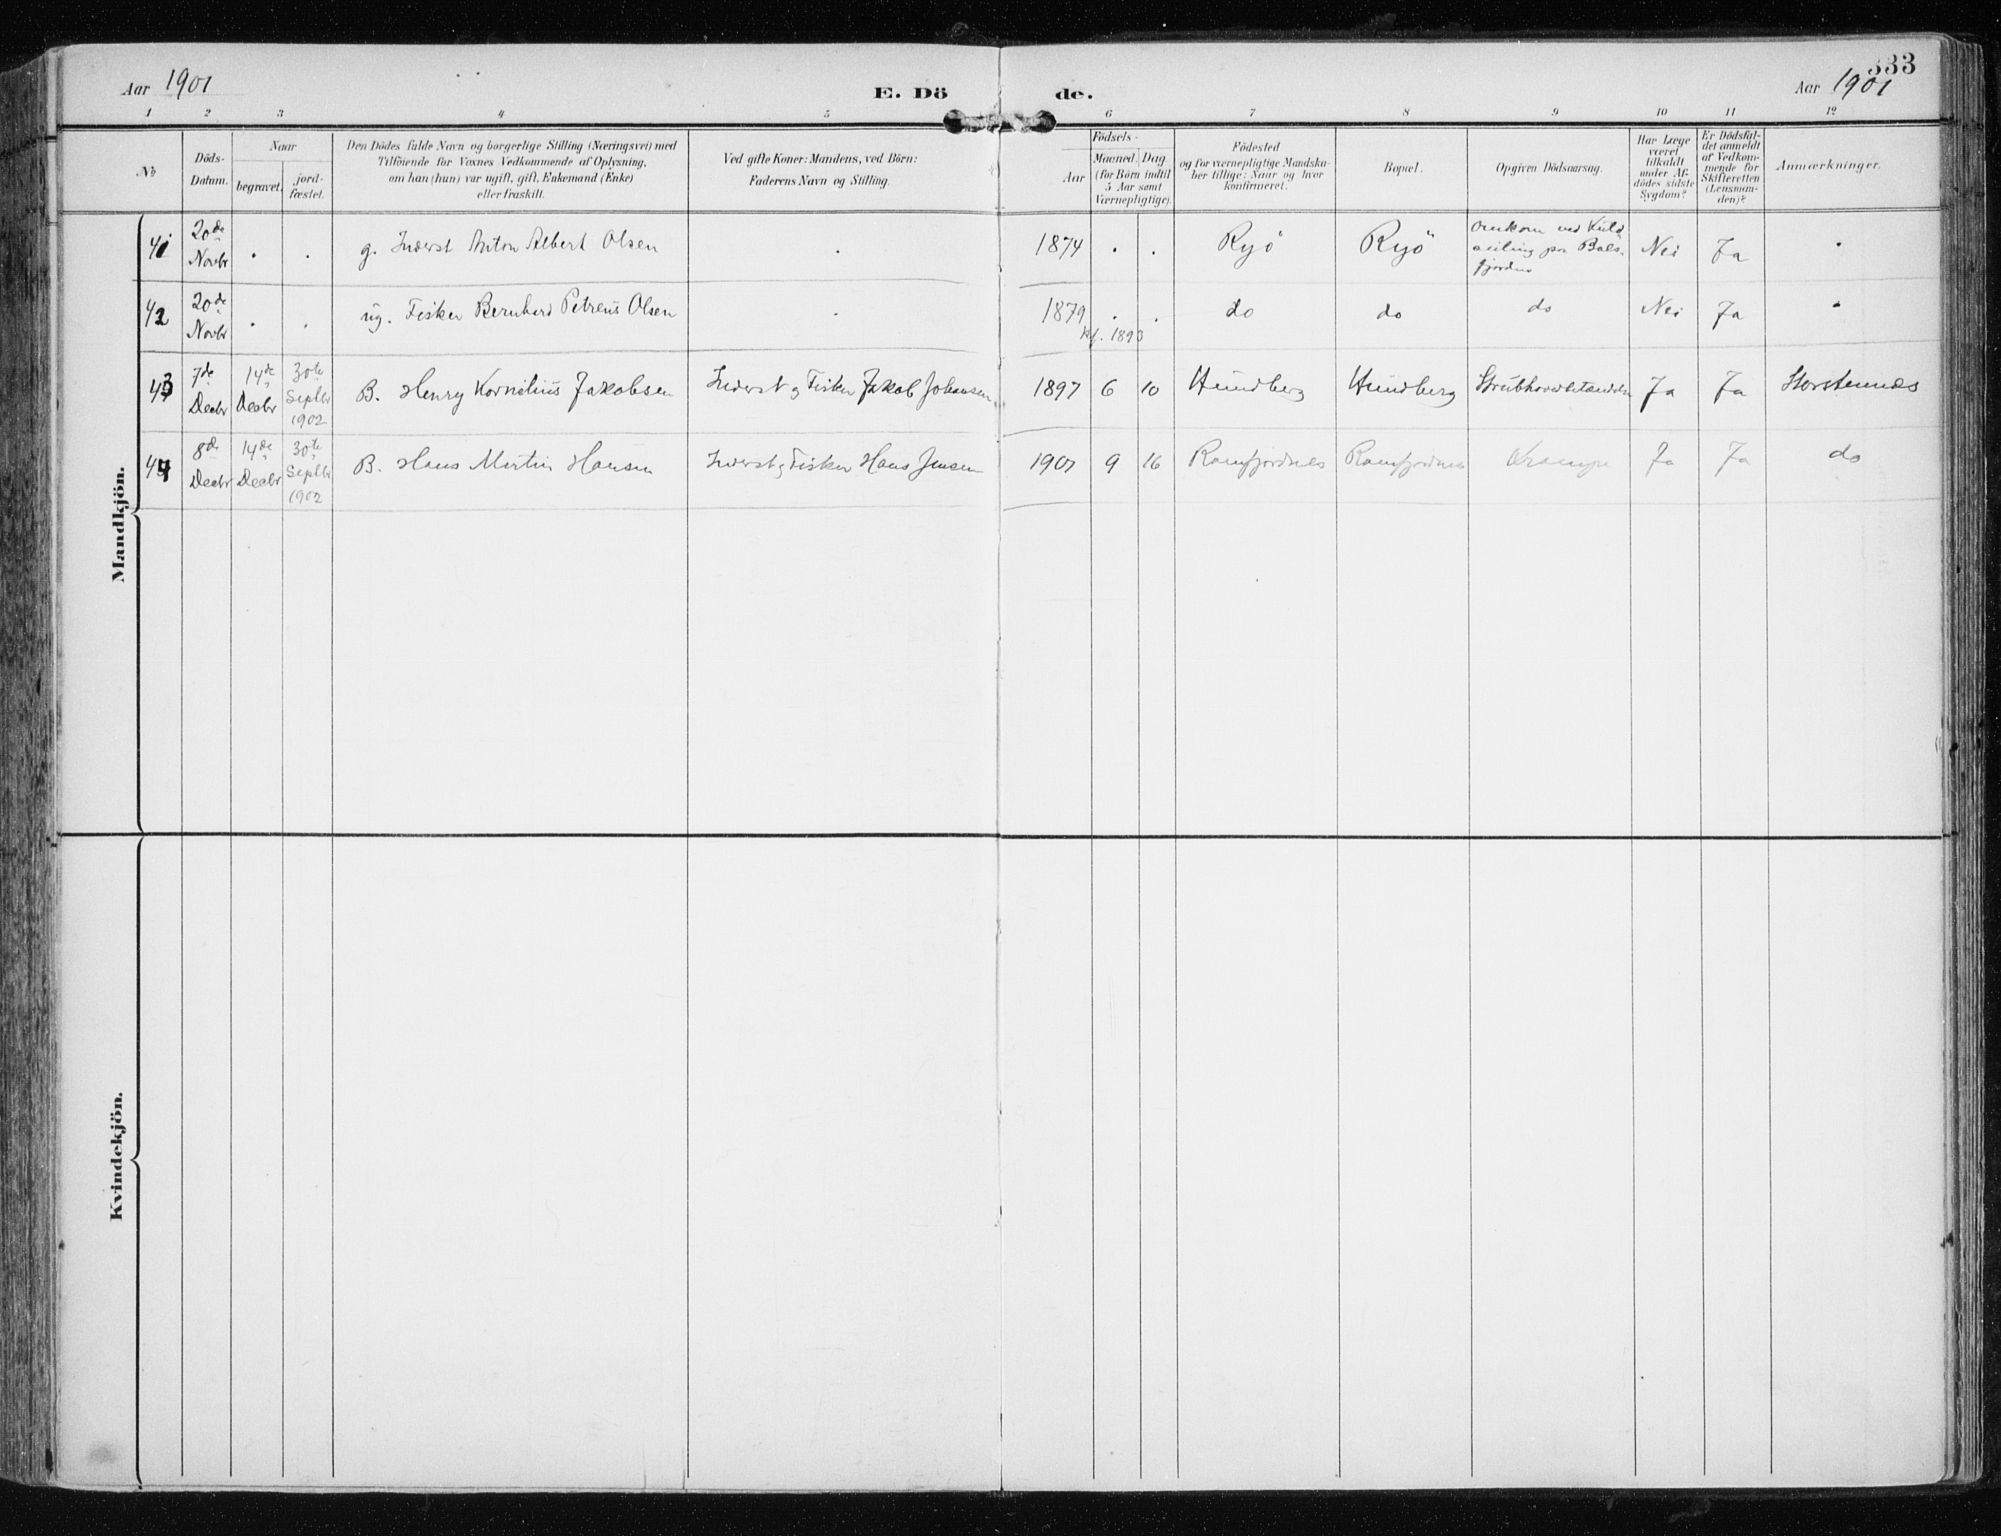 Aar 1901
E. Dö
de.
333
Aar 1901
1 2 3 4 5 6 7 8 9 10 11 12
No
Döds-
Datum.
Naar
begravet.
jord-
fæstet.
Den Dödes fulde Navn og borgerlige Stilling (Næringsvei) med
Tilföiende for Voxnes Vedkommende af Oplysning,
om han (hun) var ugift, gift, Enkemand (Enke)
eller fraskilt.
Ved gifte Koner: Mandens, ved Börn:
Faderens Navn og Stilling.
Födsels-
Aar
Maaned. Dag
(for Börn indtil
5 Aar samt
Værnepligtige).
Födested
og for værnepligtige Mandska-
ber tillige: Naar og hvor
konfirmeret.
Bopæl.
Opgiven Dödsaarsag.
Har Læge
været
tilkaldt
under Af-
dödes sidste
Sygdom?
Er Dödsfal-
det anmeldt
af Vedkom-
mende for
Skifteretten
(Lensman-
den)?
Anmærkninger.
Mandkjön.
41
20de
Novbr
.
.
g. Inderst Anton Albert Olsen
.
1874
.
.
Ryö
Ryö
Omkom ved Kuld
seiling paa Bals-
fjorden
Nei
Ja
42
20de
Novbr
.
.
ug. Fisker Bernhard Petreus Olsen
.
1879
kf. 1893
.
.
do
do
do
Nei
Ja
43
7de
Decbr
14de
Decbr
30te
Septbr
1902
B. Henry Kornelius Jakobsen
Inderst og Fisker Jakob Johansen
1897
6
10
Hundberg
Hundberg
Strubhovedbetændelse
Ja
Ja
Storstennes
44
8de
Decbr
14de
Decbr
30te
Septbr
1902
B. Hans Martin Hansen
Inderst og Fisker Hans Jensen
1901
9
16
Ramfjordnes
Ramfjordnes
Krampe
Ja
Ja
do
Kvindekjön.